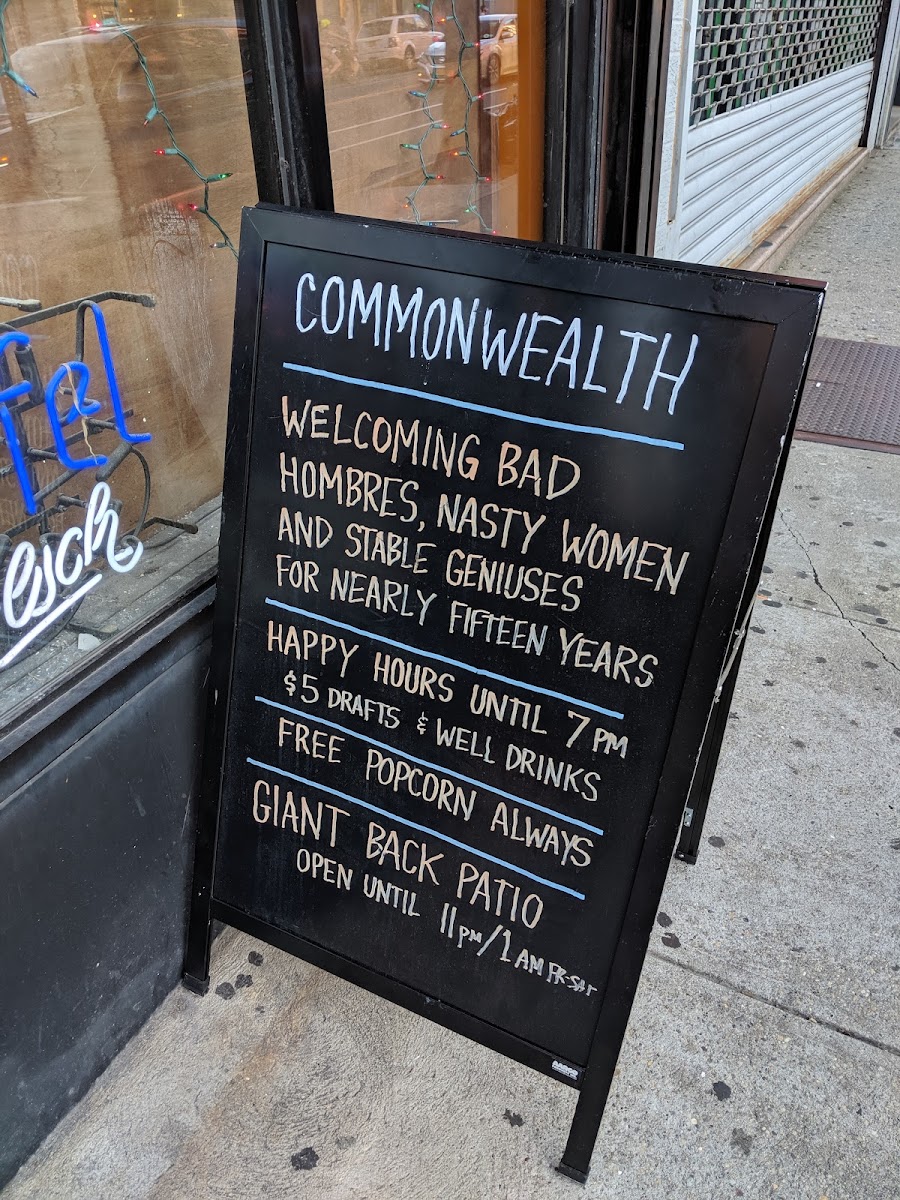 COMMONWEALTH
WELCOMING BAD
HOMBRES, NASTY WOMEN
AND STABLE GENIUSES
FOR NEARLY FIFTEEN YEARS
HAPPY HOURS UNTIL 7 PM
$5 DRAFTS & WELL DRINKS
FREE POPCORN ALWAYS
GIANT BACK PATIO
OPEN UNTIL 11 PM/1 AM FR-SAT
fel
esch